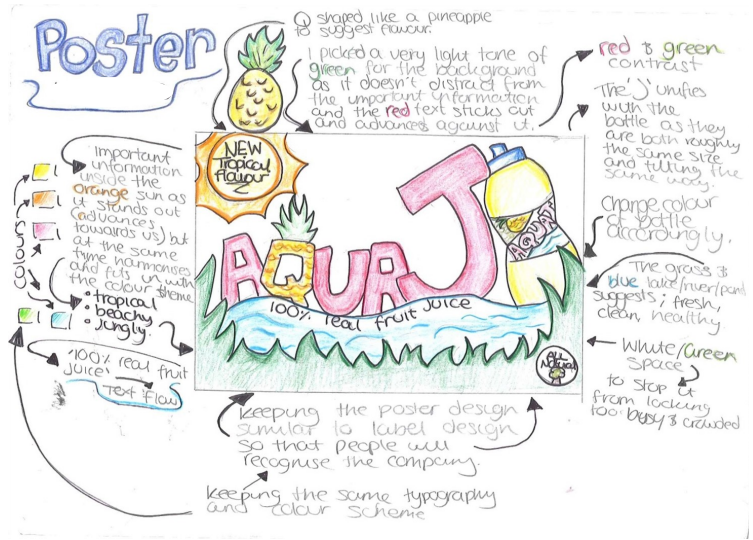 Poster
Q shaped like a pineapple
to suggest flavour.
I picked a very light tone of
green for the background
as it doesn't distract from
the important information
and the red text sticks out
and advances against it.
red & green
contrast
The 'J' unifies
with the
bottle as they
are both roughly
the same size
and tilting the
same way.
change colour
of bottle
accordingly.
The grass &
blue lake/river/pond
suggests; fresh,
clean, healthy
White/Green
space
to stop it
from looking
too busy & crowded
Important
information
inside the
orange sun as
it stands out
(advances
towards us) but
at the same
tyme harmonises
and fits in with
the colour theme
• tropical
• beachy
• jungly.
colours
'100% real fruit
juice'
Text flow
NEW
Tropical
flavour
AQUAJ
AQUAJ
100% real fruit juice
ALL
Natural
keeping the poster design
similar to label design
so that people will
recognise the company.
keeping the same typography
and colour scheme